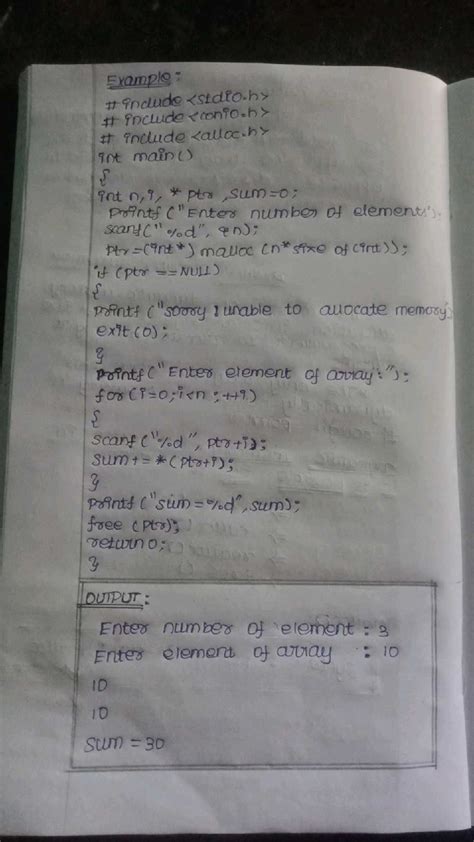 Example:
# include <stdio.h>
# include <conio.h>
# include <alloc.h>
int main()
{
int n,i, * ptr ,sum=0;
printf ("Enter number of element:");
scanf("%d", &n);
ptr=(int*) malloc (n* size of (int));
if (ptr ==NULL)
{
printf ("sorry ! unable to allocate memory");
exit(0);
}
printf("Enter element of array:");
for (i=0;i<n ;++i)
{
scanf ("%d", ptr+i);
sum+= *(ptr+i);
}
printf ("sum=%d",sum);
free (ptr);
return 0;
}
OUTPUT:
Enter number of element : 3
Enter element of array : 10
10
10
sum = 30